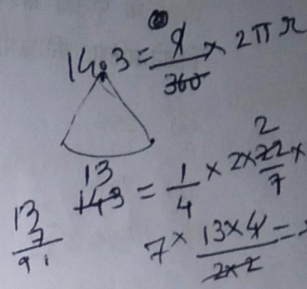 14.3 = 9/360 × 2πr
13
143 = 1/4 × 2 × 22/7 ×
2
13
7
91
7 × 13×4/2×2 =